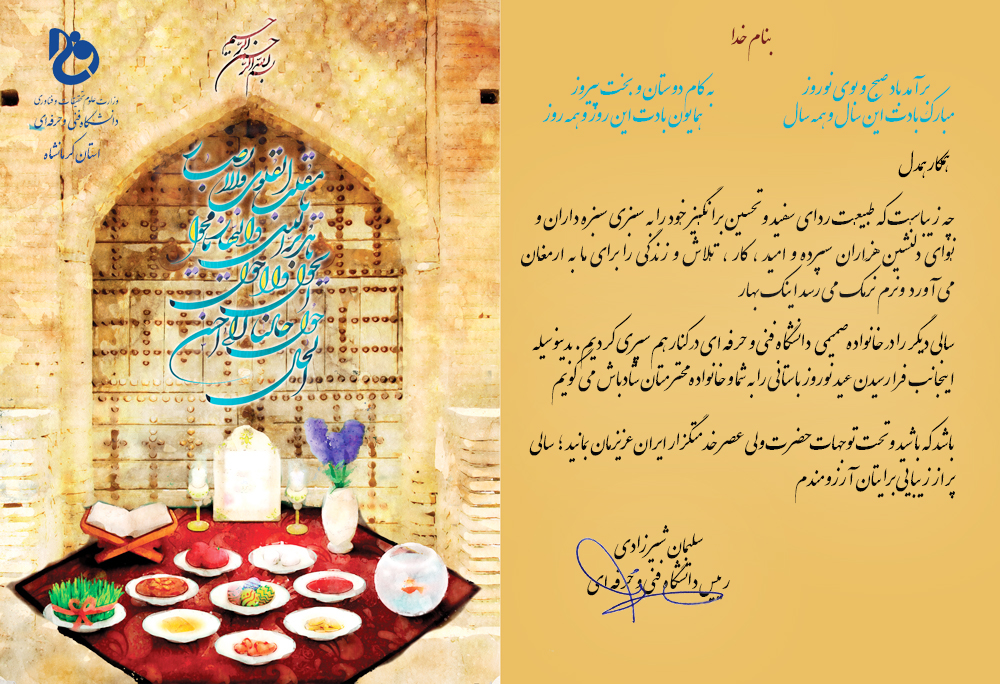 بسم الله الرحمن الرحیم
وزارت علوم تحقیقات و فناوری
دانشگاه فنی و حرفه‌ای
استان کرمانشاه
یا مقلب القلوب والابصار
یا مدبر اللیل والنهار
یا محول الحول والاحوال
حول حالنا الی احسن الحال
بنام خدا
برآمد باد صبح و بوی نوروز
به کام دوستان و بخت پیروز
مبارک بادت این سال و همه سال
همایون بادت این روز و همه روز
همکار همدل
چه زیباست که طبیعت ردای سفید و تحسین برانگیز خود را به سبزی سبزه داران و
نوای دلنشین هزاران سپرده و امید ، کار ، تلاش و زندگی را برای ما به ارمغان
می آورد و نرم نرمک می رسد اینک بهار
سالی دیگر را در خانواده صمیمی دانشگاه فنی و حرفه ای در کنار هم سپری کردیم. بدینوسیله
اینجانب فرا رسیدن عید نوروز باستانی را به شما و خانواده محترمتان شادباش می گویم
باشد که باشید و تحت توجهات حضرت ولی عصر خدمتگزار ایران عزیزمان بمانید ؛ سالی
پر از زیبایی برایتان آرزومندم
سلیمان شیرزادی
رییس دانشگاه فنی و حرفه ای